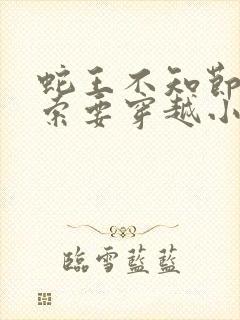 蛇王不知節
索要穿越小
臨雪藍藍